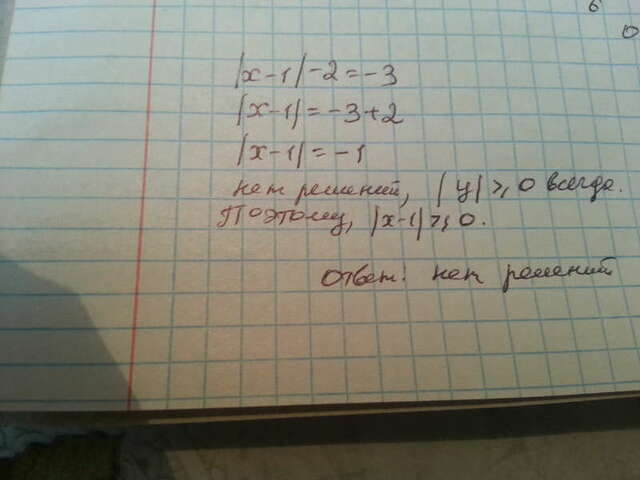 6
0
|x-1|-2=-3
|x-1|=-3+2
|x-1|=-1
нет решений, |y|⩾0 всегда.
Поэтому, |x-1|⩾0.
Ответ: нет решений